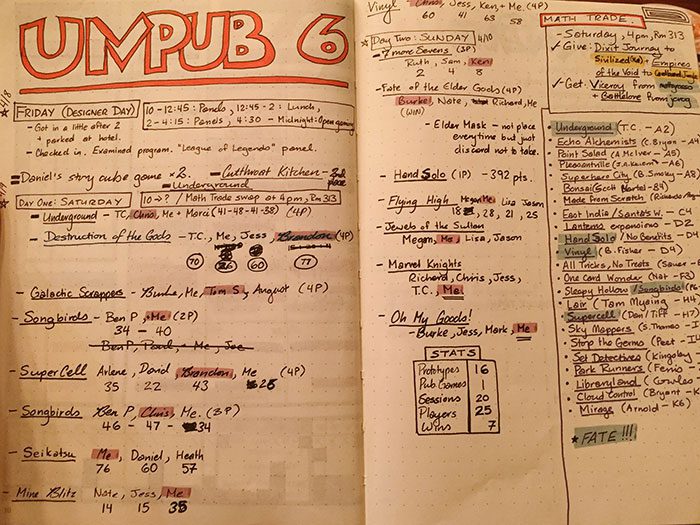 UMPUB 6
4/8
FRIDAY (DESIGNER DAY)
10-12:45: Panels, 12:45-2: Lunch,
2-4:15: Panels, 4:30 - Midnight: Open gaming
- Got in a little after 2
+ parked at hotel.
- Checked in. Examined program. "League of Legends" panel.
- Daniel's story cube game x2.
- Cutthroat Kitchen - 2nd place
- Underground
DAY ONE: SATURDAY
10 → ? / Math Trade swap at 4pm, Rm 313
- Underground - TC, Chris, Me + Marci (41-48-41-38) (4P)
- Destruction of the Gods - T.C., Me, Jess, Brandon (4P)
70 86 60 77
- Galactic Scrappers - Burke, Me, Tom S, August (4P)
- Songbirds - Ben P, Me (2P)
34 - 40
Ben P, Paul, - Me, Joe
- SuperCell Arlene, David, Brandon, Me (4P)
35 22 43 28
- Songbirds Ben P, Chris, Me. (3P)
46 - 47 - 34
- Seikatsu Me, Daniel, Heath
76 60 57
- Mine Blitz Nate, Jess, Me
14 15 35
Vinyl - Chris, Jess, Ken, + Me. (4P)
60 41 63 58
DAY TWO: SUNDAY 4/10
- 7 more Sevens (3P)
Ruth, Sam, Ken
2 4 8
- Fate of the Elder Gods (4P)
Burke!, Nate, Richard, Me
(WIN)
- Elder Mask - not place
everything but just
discard not to take.
- Hand Solo (1P) - 392 pts.
- Flying High Megan Me Lisa Jason
18, 28, 21, 25
- Jewels of the Sultan
Megan, Me, Lisa, Jason
- Marvel Knights
Richard, Chris, Jess,
T.C., Me
- Oh My Goods!
- Burke, Jess, Mark, Me
STATS
Prototypes 16
Pub Games 1
Sessions 20
Players 25
Wins 7
MATH TRADE.
- Saturday, 4 pm, Rm 313
✓ Give: Dixit Journey to
+ Empires
of the Void to
✓ Get: Viceroy from
+ Battlelore from
Underground (T.C. - A2)
Echo Alchemists (C. Bryan - A4
Point Salad (A. McIver - A5
Pleasantville
Superhero City (B. Smokey - A8)
Bonsai (Scott Bortel - B4)
Made from Scratch
East India / Santa's W. - C4
Lanterns expansions - D2
Hand Solo / No Benefits - D4
Vinyl (B. Fisher - D4)
All Tricks, No Treats
One Card Wonder (Nat - F3)
Sleepy Hollow / Songbirds
Lair (Tam Myaing - H4
Supercell (Dan / Tiff - H7)
Sky Mappers (S. Thomas -
Stop the Germs (Peet - I4
Set Detectives (Kingsley
Park Runners (Fenio -
Libraryland (Cowles
Cloud Control (Bryant - K
Mirage (Arnold - K6)
★ FATE!!!